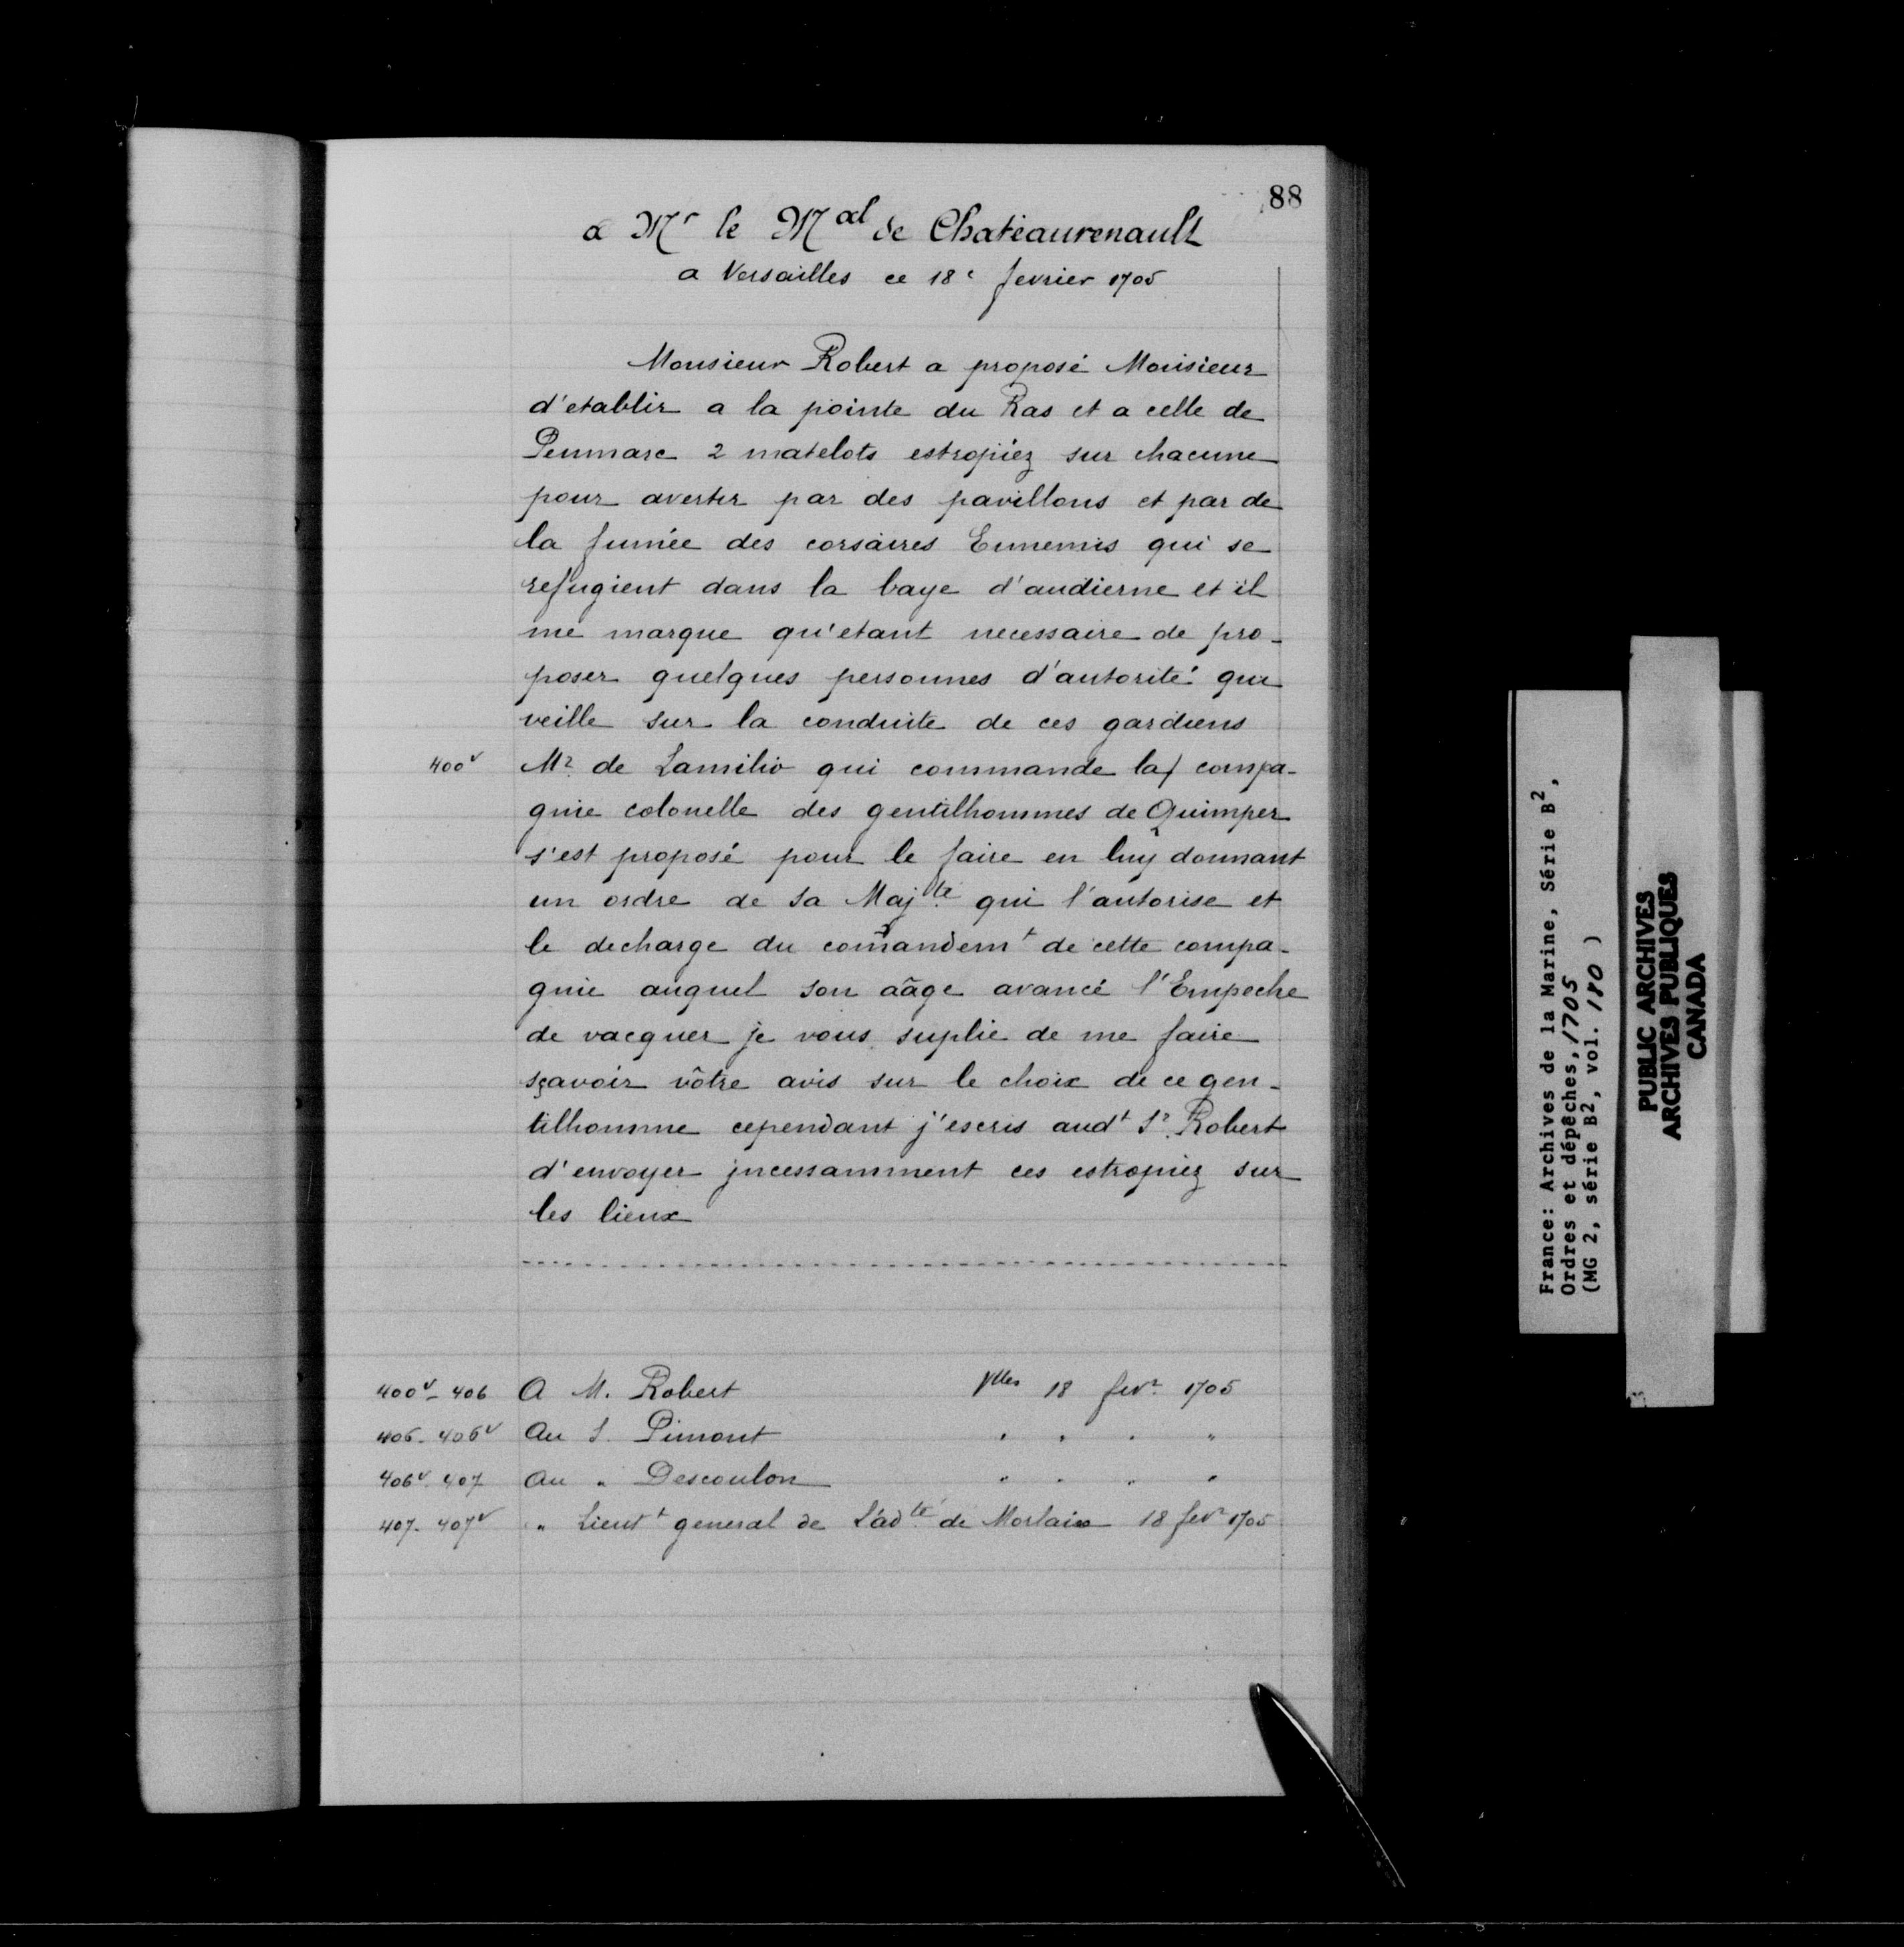 88
a Mr le Mal de Chateaurenault
a Versailles ce 18e fevrier 1705
Monsieur Robert a proposé Monsieur
d'etablir a la pointe du Ras et a celle de
Penmarc 2 matelots estropiéz sur chacune
pour avertir par des pavillons et par de
la fumée des corsaires Ennemis qui se
refugient dans la baye d'audierne et il
me marque qu'etant necessaire de pro-
poser quelques personnes d'autorité qui
veille sur la conduite de ces gardiens
400v Mr de Lamilio qui commande la/ compa-
gnie colonelle des gentilhommes de Quimper
s'est proposé pour le faire en luy donnant
un ordre de sa Majté qui l'autorise et
le decharge du comandemt de cette compa-
gnie auquel son aâge avancé l'Empeche
de vacquer je vous suplie de me faire
sçavoir vôtre avis sur le choix de ce gen-
tilhomme cependant j'escris audt Sr Robert
d'envoyer jncessamment ces estropiez sur
les lieux
400v-406 A M. Robert Vlles 18 fevr 1705
406-406v Au S. Pimont " " " "
406v-407 Au " Descoulon " " " "
407-407v " Lieutt general de L'adté de Morlaix 18 fevr 1705
France: Archives de la Marine, Série B2,
Ordres et dépêches, 1705
(MG 2, série B2, vol. 180 )
PUBLIC ARCHIVES
ARCHIVES PUBLIQUES
CANADA